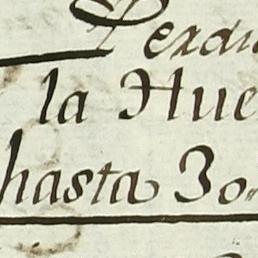 Perdi
la Hue
hasta 30